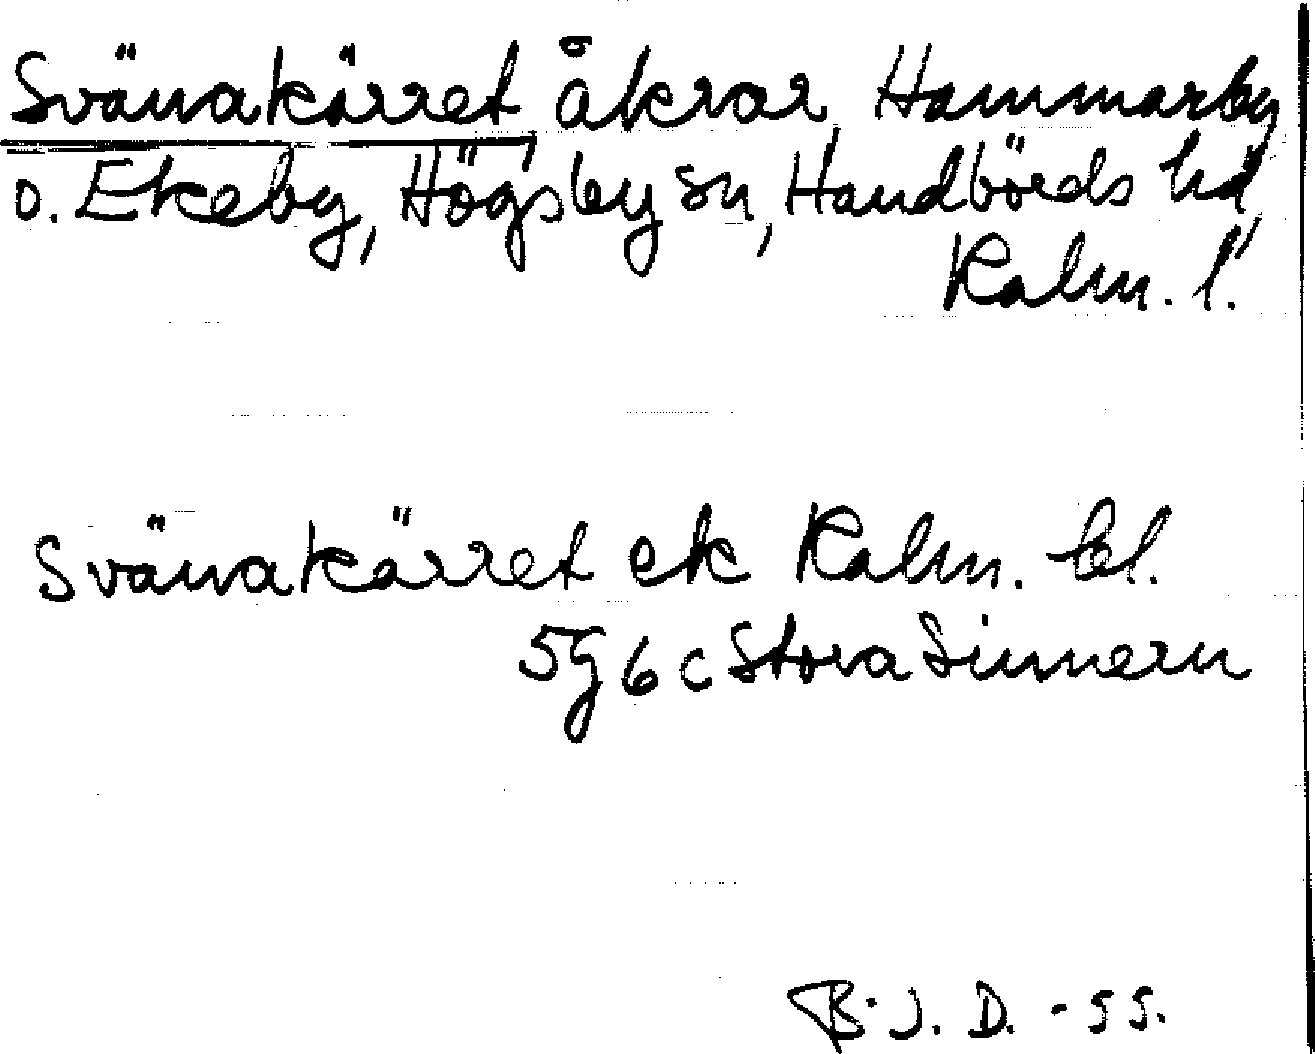 Svänakärret, åkrar, Hammarby
o. Ekeby, Högsby sn, Handbörds hd,
Kalm. l.
Svänakärret ek Kalm. bl.
5G 6c Stora Sinnern
B.J.D. -55.